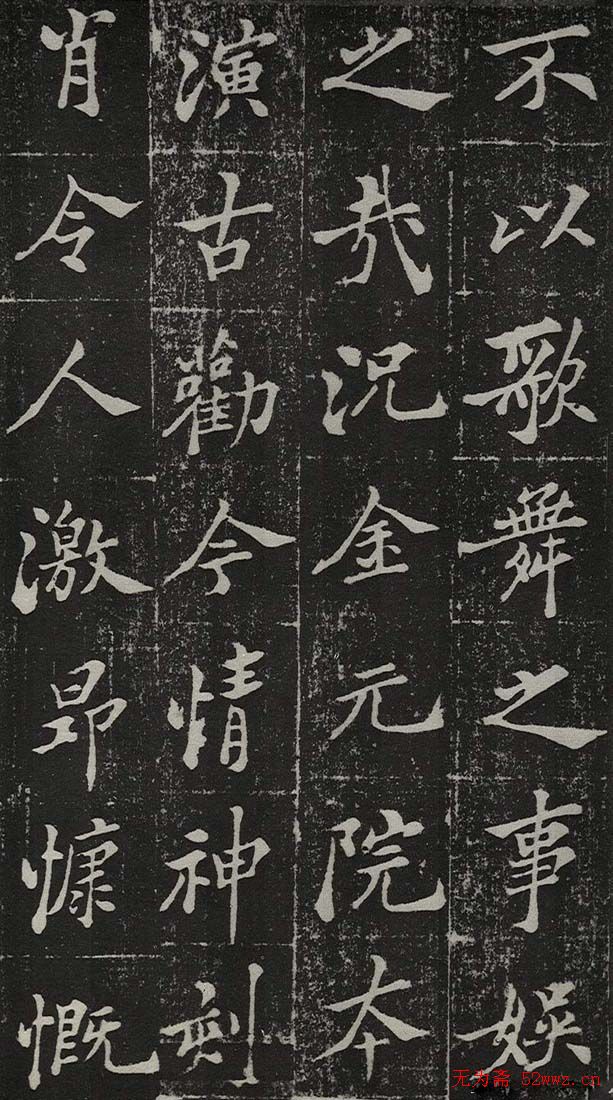 不以歌舞之事娱
之哉况金元院本
演古勸今情神刻
肖令人激昂慷慨
无为斋 52wwz.cn